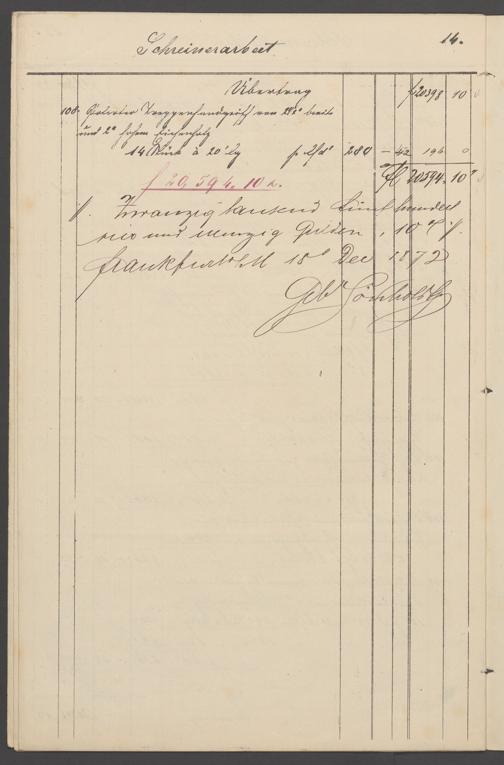 Schreinerarbeit 14.
Übertrag f 20398 10
108. Polirter Treppenhandgriff von 2½" breite
und 2" hohem Eichenholz
14 Stück à 20' lg pr lfd' 280 — 42 196 0
fl 20594. 10
f 20,594. 10 x.
Zwanzig tausend fünfhundert
vier und neunzig Gulden, 10 x
Frankfurt a/M 18 Dec 1872
Gebr